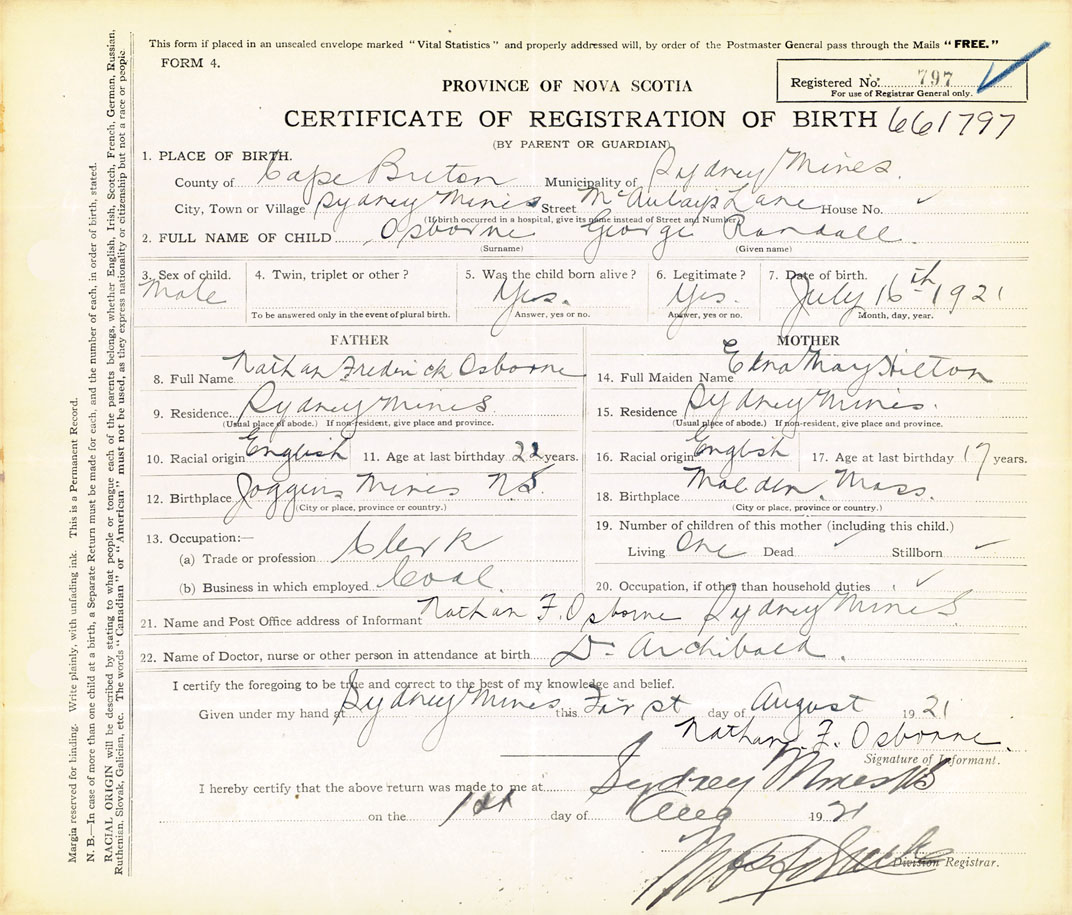 This form if placed in an unsealed envelope marked "Vital Statistics" and properly addressed will, by order of the Postmaster General pass through the Mails "FREE."
FORM 4.
Registered No. 797
For use of Registrar General only.
PROVINCE OF NOVA SCOTIA
CERTIFICATE OF REGISTRATION OF BIRTH 661797
(BY PARENT OR GUARDIAN)
1. PLACE OF BIRTH.
County of Cape Breton Municipality of Sydney Mines.
City, Town or Village Sydney Mines Street McAulay's Lane House No. ✓
(If birth occurred in a hospital, give its name instead of Street and Number)
2. FULL NAME OF CHILD Osborne George Randall
(Surname) (Given name)
3. Sex of child. 4. Twin, triplet or other? 5. Was the child born alive? 6. Legitimate? 7. Date of birth.
Male Yes. Yes. July 16th 1921
To be answered only in the event of plural birth. Answer, yes or no. Answer, yes or no. Month, day, year.
FATHER
8. Full Name Nathan Frederick Osborne
9. Residence Sydney Mines
(Usual place of abode.) If non-resident, give place and province.
10. Racial origin English 11. Age at last birthday 22 years.
12. Birthplace Joggins Mines NS.
(City or place, province or country.)
13. Occupation:—
(a) Trade or profession Clerk
(b) Business in which employed Coal
MOTHER
14. Full Maiden Name Edna May Hilton
15. Residence Sydney Mines.
(Usual place of abode.) If non-resident, give place and province.
16. Racial origin English 17. Age at last birthday 17 years.
18. Birthplace Malden, Mass.
(City or place, province or country.)
19. Number of children of this mother (including this child.)
Living One Dead ✓ Stillborn ✓
20. Occupation, if other than household duties ✓
21. Name and Post Office address of Informant Nathan F. Osborne Sydney Mines
22. Name of Doctor, nurse or other person in attendance at birth Dr. Archibald.
I certify the foregoing to be true and correct to the best of my knowledge and belief.
Given under my hand at Sydney Mines this First day of August 1921
Nathan F. Osborne.
Signature of Informant.
I hereby certify that the above return was made to me at Sydney Mines NS
on the 1st day of Aug 1921
Division Registrar.
Margin reserved for binding. Write plainly, with unfading ink. This is a Permanent Record.
N. B.—In case of more than one child at a birth, a Separate Return must be made for each, and the number of each, in order of birth, stated.
RACIAL ORIGIN will be described by stating to what people or tongue each of the parents belongs, whether English, Irish, Scotch, French, German, Russian,
Ruthenian, Slovak, Galician, etc. The words "Canadian" or "American" must not be used, as they express nationality or citizenship but not a race or people